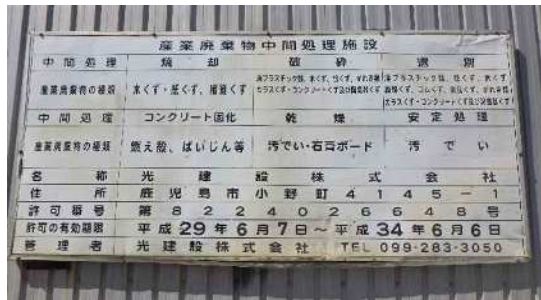 産業廃棄物中間処理施設
中間処理 焼却 破砕 選別
産業廃棄物の種類 木くず・紙くず、繊維くず 廃プラスチック類、木くず、紙くず、がれき類 ガラスくず・コンクリートくず及び陶磁器くず 廃プラスチック類、紙くず、木くず 繊維くず、ゴムくず、金属くず、がれき類 ガラスくず・コンクリートくず及び陶磁器くず
中間処理 コンクリート固化 乾燥 安定処理
産業廃棄物の種類 燃え殻、ばいじん等 汚でい・石膏ボード 汚でい
名称 光建設株式会社
住所 鹿児島市小野町4145-1
許可番号 第8224026648号
許可の有効期限 平成29年6月7日~平成34年6月6日
管理者 光建設株式会社 TEL 099-283-3050